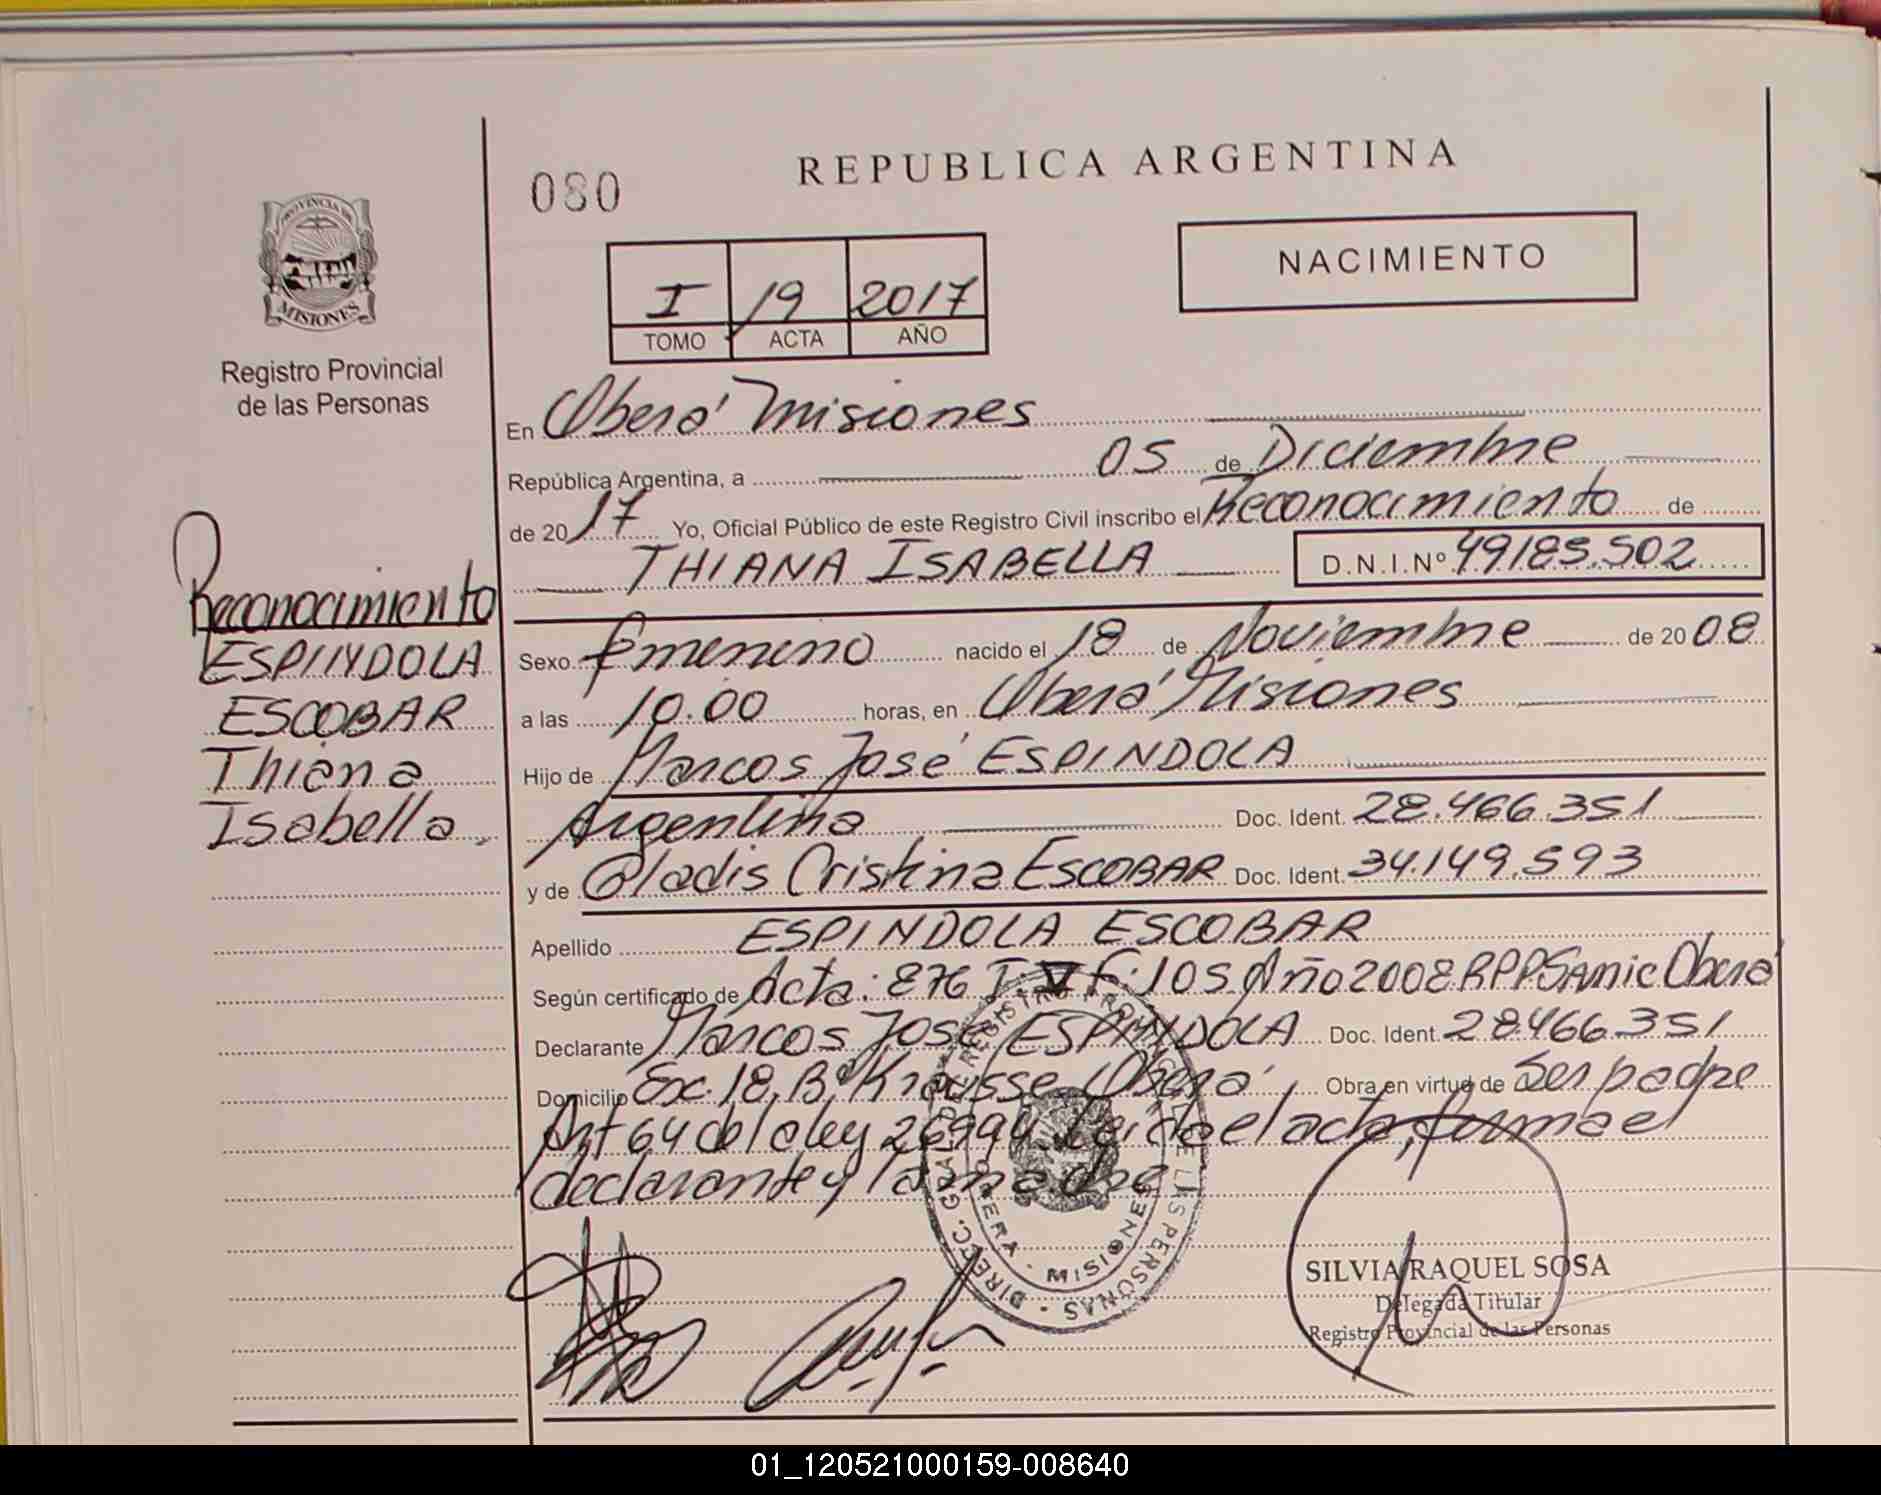 REPUBLICA ARGENTINA
080
NACIMIENTO
I 19 2017
TOMO ACTA AÑO
PROVINCIA DE
MISIONES
Registro Provincial
de las Personas
Reconocimiento
ESPINDOLA
ESCOBAR
Thiana
Isabella.
En Oberá Misiones
República Argentina, a 05 de Diciembre
de 2017 Yo, Oficial Público de este Registro Civil inscribo el Reconocimiento de
THIANA ISABELLA D.N.I.Nº 49185.502
Sexo femenino nacido el 18 de Noviembre de 2008
a las 10.00 horas, en Oberá Misiones
Hijo de Marcos José ESPINDOLA
Argentina Doc. Ident. 28.466.351
y de Gladis Cristina ESCOBAR Doc. Ident. 34.149.593
Apellido ESPINDOLA ESCOBAR
Según certificado de Acta: 876 T: V F: 105 Año 2008 RPPSamic Oberá
Declarante Marcos José ESPINDOLA Doc. Ident. 28.466.351
Domicilio Ex. 18. Bº Krausse Oberá Obra en virtud de Ser padre
Art 64 de la ley 26994. Leída el acta, firma el
declarante y la madre
DIREC. GRAL. DE REGISTRO PROVINCIAL DE LAS PERSONAS
OBERA - MISIONES
SILVIA RAQUEL SOSA
Delegada Titular
Registro Provincial de las Personas
01_120521000159-008640